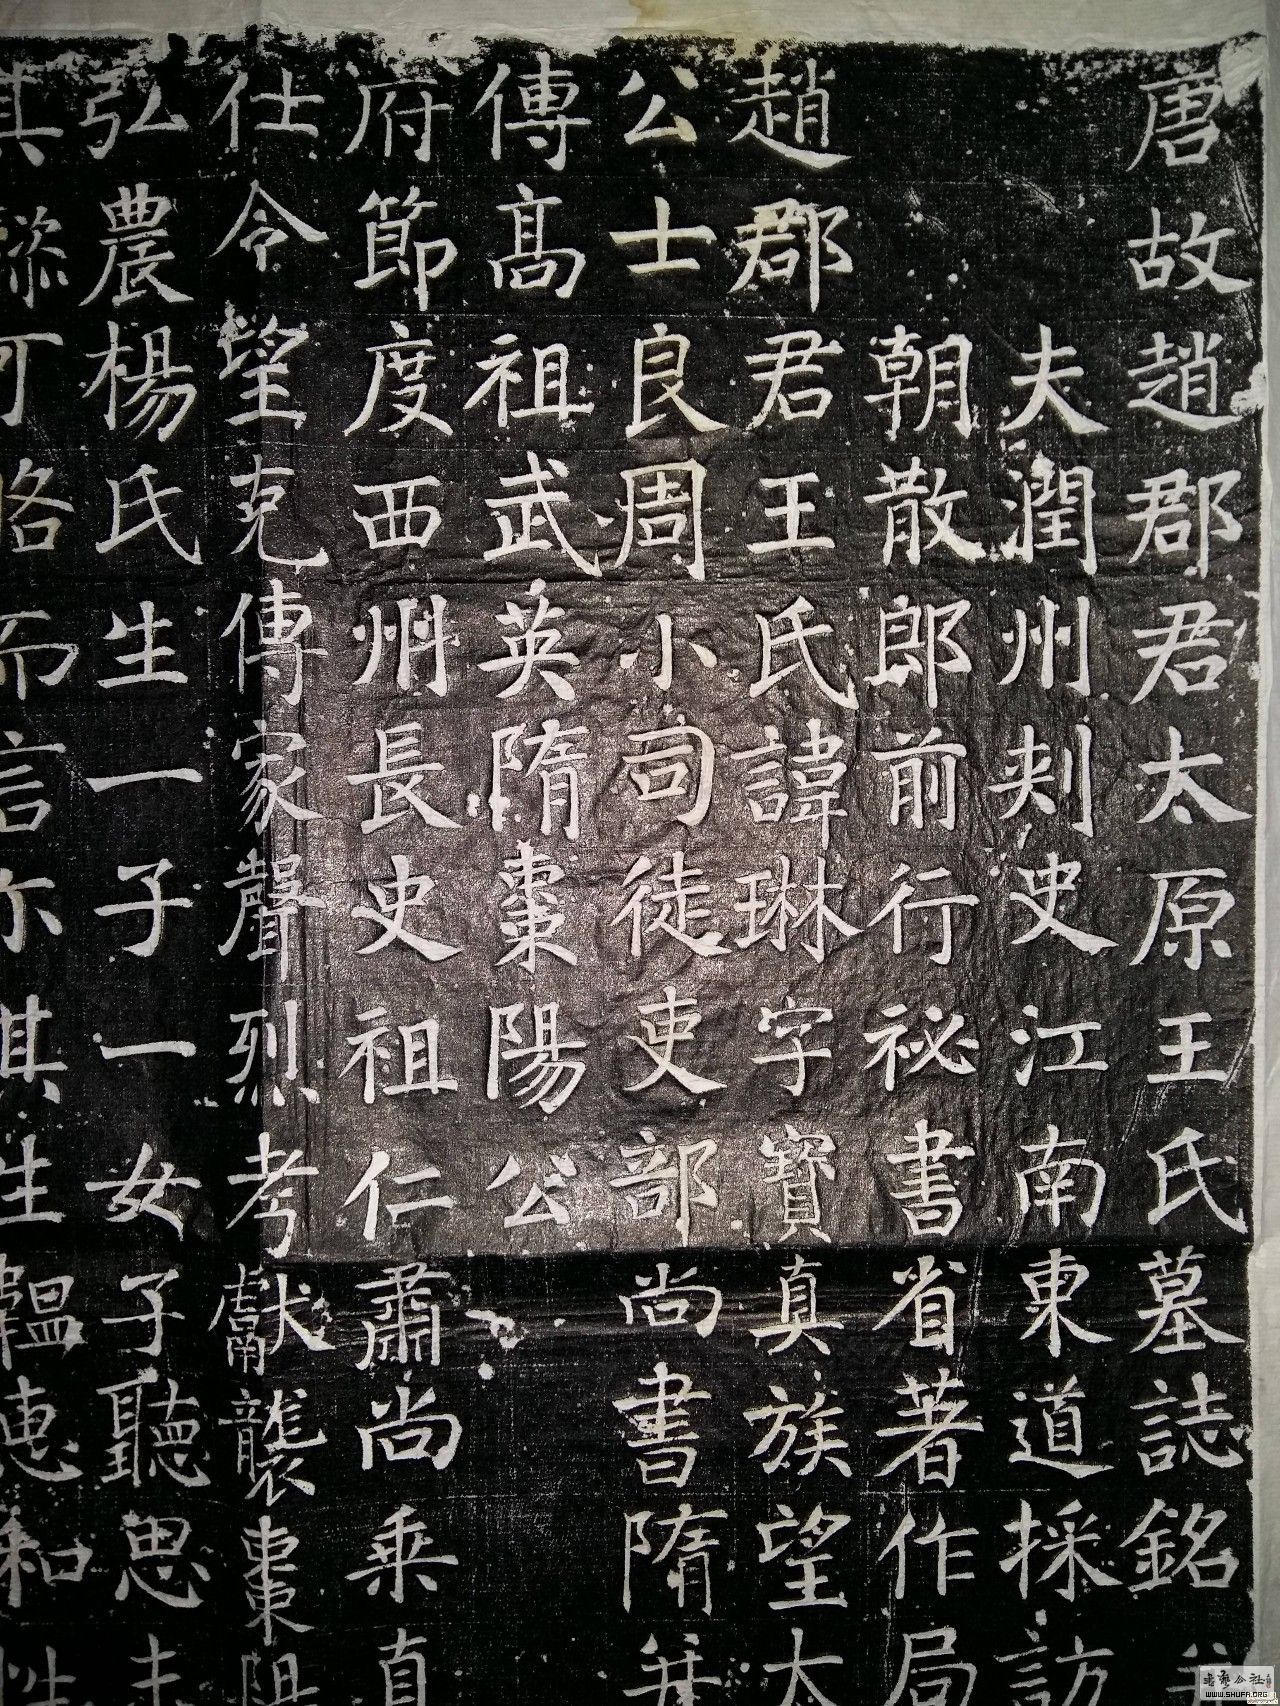 唐故趙郡君太原王氏墓誌銘
夫潤州刾史江南東道採訪
朝散郎前行祕書省著作局
趙郡君王氏諱琳字寶真族望太
公士良周小司徒吏部尚書隋并
傳髙祖武英隋棗陽公
府節度西州長史祖仁肅尚乗直
仕令望克傳家聲烈考獻襲棗陽
弘農楊氏生一子一女子聽思
其 可 而言尔其生韞惠和
WWW.SHUFA.ORG